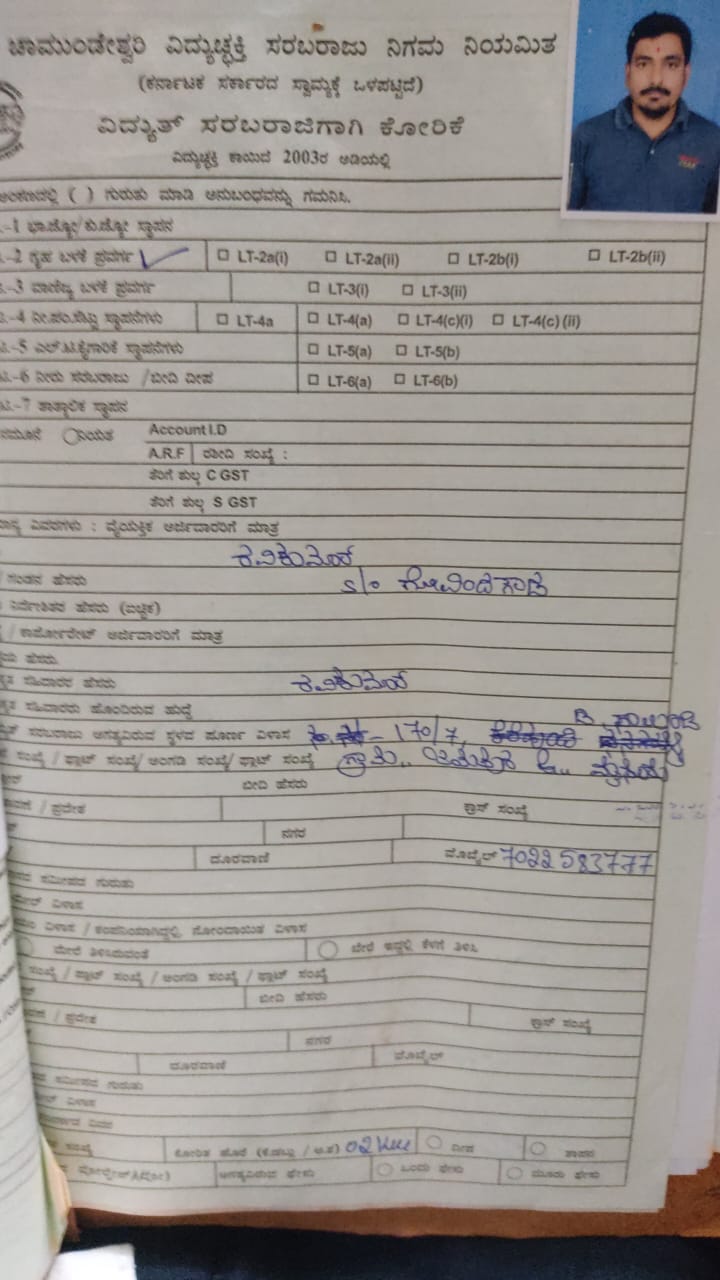 ಚಾಮುಂಡೇಶ್ವರಿ ವಿದ್ಯುಚ್ಛಕ್ತಿ ಸರಬರಾಜು ನಿಗಮ ನಿಯಮಿತ
(ಕರ್ನಾಟಕ ಸರ್ಕಾರದ ಸ್ವಾಮ್ಯಕ್ಕೆ ಒಳಪಟ್ಟಿದೆ)
ವಿದ್ಯುತ್ ಸರಬರಾಜಿಗಾಗಿ ಕೋರಿಕೆ
ವಿದ್ಯುಚ್ಛಕ್ತಿ ಕಾಯಿದೆ 2003ರ ಅಡಿಯಲ್ಲಿ
ಅಂಕಣದಲ್ಲಿ ( ) ಗುರುತು ಮಾಡಿ ಅನುಬಂಧವನ್ನು ಗಮನಿಸಿ.
-1 ಭಾ.ಜ್ಯೋ/ಕು.ಜ್ಯೋ ಸ್ಥಾಪನ
-2 ಗೃಹ ಬಳಕೆ ಪ್ರವರ್ಗ LT-2a(i) LT-2a(ii) LT-2b(i) LT-2b(ii)
-3 ವಾಣಿಜ್ಯ ಬಳಕೆ ಪ್ರವರ್ಗ LT-3(i) LT-3(ii)
-4 ನೀ.ಪಂ.ಸೆಟ್ಟು ಸ್ಥಾಪನೆಗಳು LT-4a LT-4(a) LT-4(c)(i) LT-4(c) (ii)
-5 ಎಲ್.ಟಿ.ಕೈಗಾರಿಕೆ ಸ್ಥಾಪನೆಗಳು LT-5(a) LT-5(b)
-6 ನೀರು ಸರಬರಾಜು /ಬೀದಿ ದೀಪ LT-6(a) LT-6(b)
-7 ತಾತ್ಕಾಲಿಕ ಸ್ಥಾಪನ
ನಮೂನೆ ನಿಯತ Account I.D
A.R.F ರಶೀದಿ ಸಂಖ್ಯೆ :
ತೆರಿಗೆ ಶುಲ್ಕ C GST
ತೆರಿಗೆ ಶುಲ್ಕ S GST
ವಿವರಗಳು : ವೈಯಕ್ತಿಕ ಅರ್ಜಿದಾರರಿಗೆ ಮಾತ್ರ
ರವಿಕುಮಾರ್
ಗಂಡನ ಹೆಸರು S/o ಗೋವಿಂದೆಗೌಡ
ನಿರ್ದೇಶಿತರ ಹೆಸರು (ಐಚ್ಛಿಕ)
/ ಕಾರ್ಪೋರೇಟ್ ಅರ್ಜಿದಾರರಿಗೆ ಮಾತ್ರ
ಹೆಸರು
ಸಹಿದಾರರ ಹೆಸರು ರವಿಕುಮಾರ್
ಸಹಿದಾರರು ಹೊಂದಿರುವ ಹುದ್ದೆ
ಸರಬರಾಜು ಅಗತ್ಯವಿರುವ ಸ್ಥಳದ ಪೂರ್ಣ ವಿಳಾಸ 170/7,
ಸಂಖ್ಯೆ / ಫ್ಲಾಟ್ ಸಂಖ್ಯೆ/ ಅಂಗಡಿ ಸಂಖ್ಯೆ/ ಪ್ಲಾಟ್ ಸಂಖ್ಯೆ
ಬೀದಿ ಹೆಸರು
/ ಪ್ರದೇಶ ಕ್ರಾಸ್ ಸಂಖ್ಯೆ
ನಗರ
ದೂರವಾಣಿ ಮೊಬೈಲ್ 7022583777
ಸಮೀಪದ ಗುರುತು
ವಿಳಾಸ
ವಿಳಾಸ / ಕಂಪನಿಯಾಗಿದ್ದಲ್ಲಿ, ನೋಂದಾಯಿತ ವಿಳಾಸ
ಮೇಲೆ ತಿಳಿಸಿರುವಂತೆ ಬೇರೆ ಇದ್ದಲ್ಲಿ ಕೆಳಗೆ ತಿಳಿಸಿ
ಸಂಖ್ಯೆ / ಫ್ಲಾಟ್ ಸಂಖ್ಯೆ / ಅಂಗಡಿ ಸಂಖ್ಯೆ / ಪ್ಲಾಟ್ ಸಂಖ್ಯೆ
ಬೀದಿ ಹೆಸರು
/ ಪ್ರದೇಶ ಕ್ರಾಸ್ ಸಂಖ್ಯೆ
ನಗರ
ದೂರವಾಣಿ ಮೊಬೈಲ್
ಸಮೀಪದ ಗುರುತು
ವಿಳಾಸ
ವಿವರ
ಸಂಖ್ಯೆ ಕೋರಿಕೆ ಹೊರೆ 02 ದೀಪ ತಾಪನ
ಅಗತ್ಯವಿರುವ ಫೇಸು ಒಂದು ಫೇಸು ಮೂರು ಫೇಸು